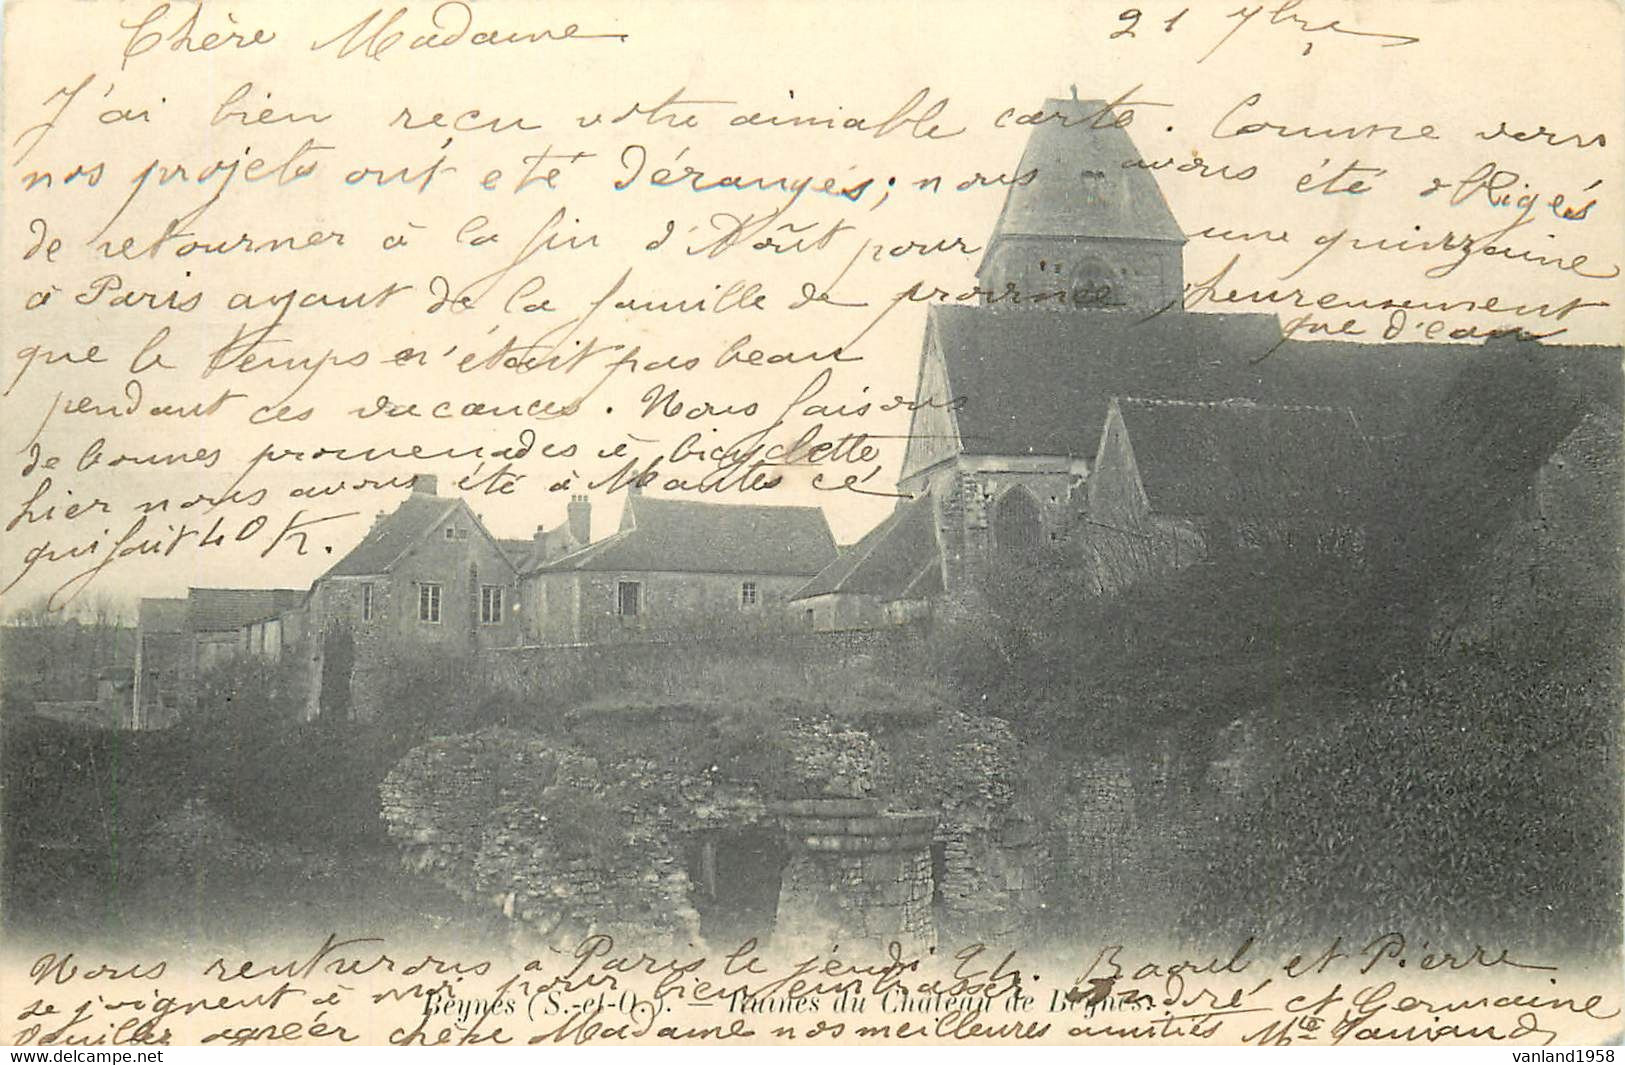 Chère Madame. 21 7bre
J'ai bien reçu votre aimable carte. Comme vous
nos projets ont été dérangés; nous avons été obligés
de retourner à la fin d'Août pour une quinzaine
à Paris ayant de la famille de province, heureusement
que le temps n'était pas beau
que d'eau
pendant ces vacances. Nous faisons
de bonnes promenades à bicyclette
hier nous avons été à Mantes cé
qui fait 40 K.
Nous rentrerons à Paris le jeudi Raoul et Pierre
se joignent à moi pour bien embrasser André et Germaine
Beynes (S.-et-O.). — Ruines du Château de Beynes.
Veuillez agréer chère Madame nos meilleures amitiés
vanland1958